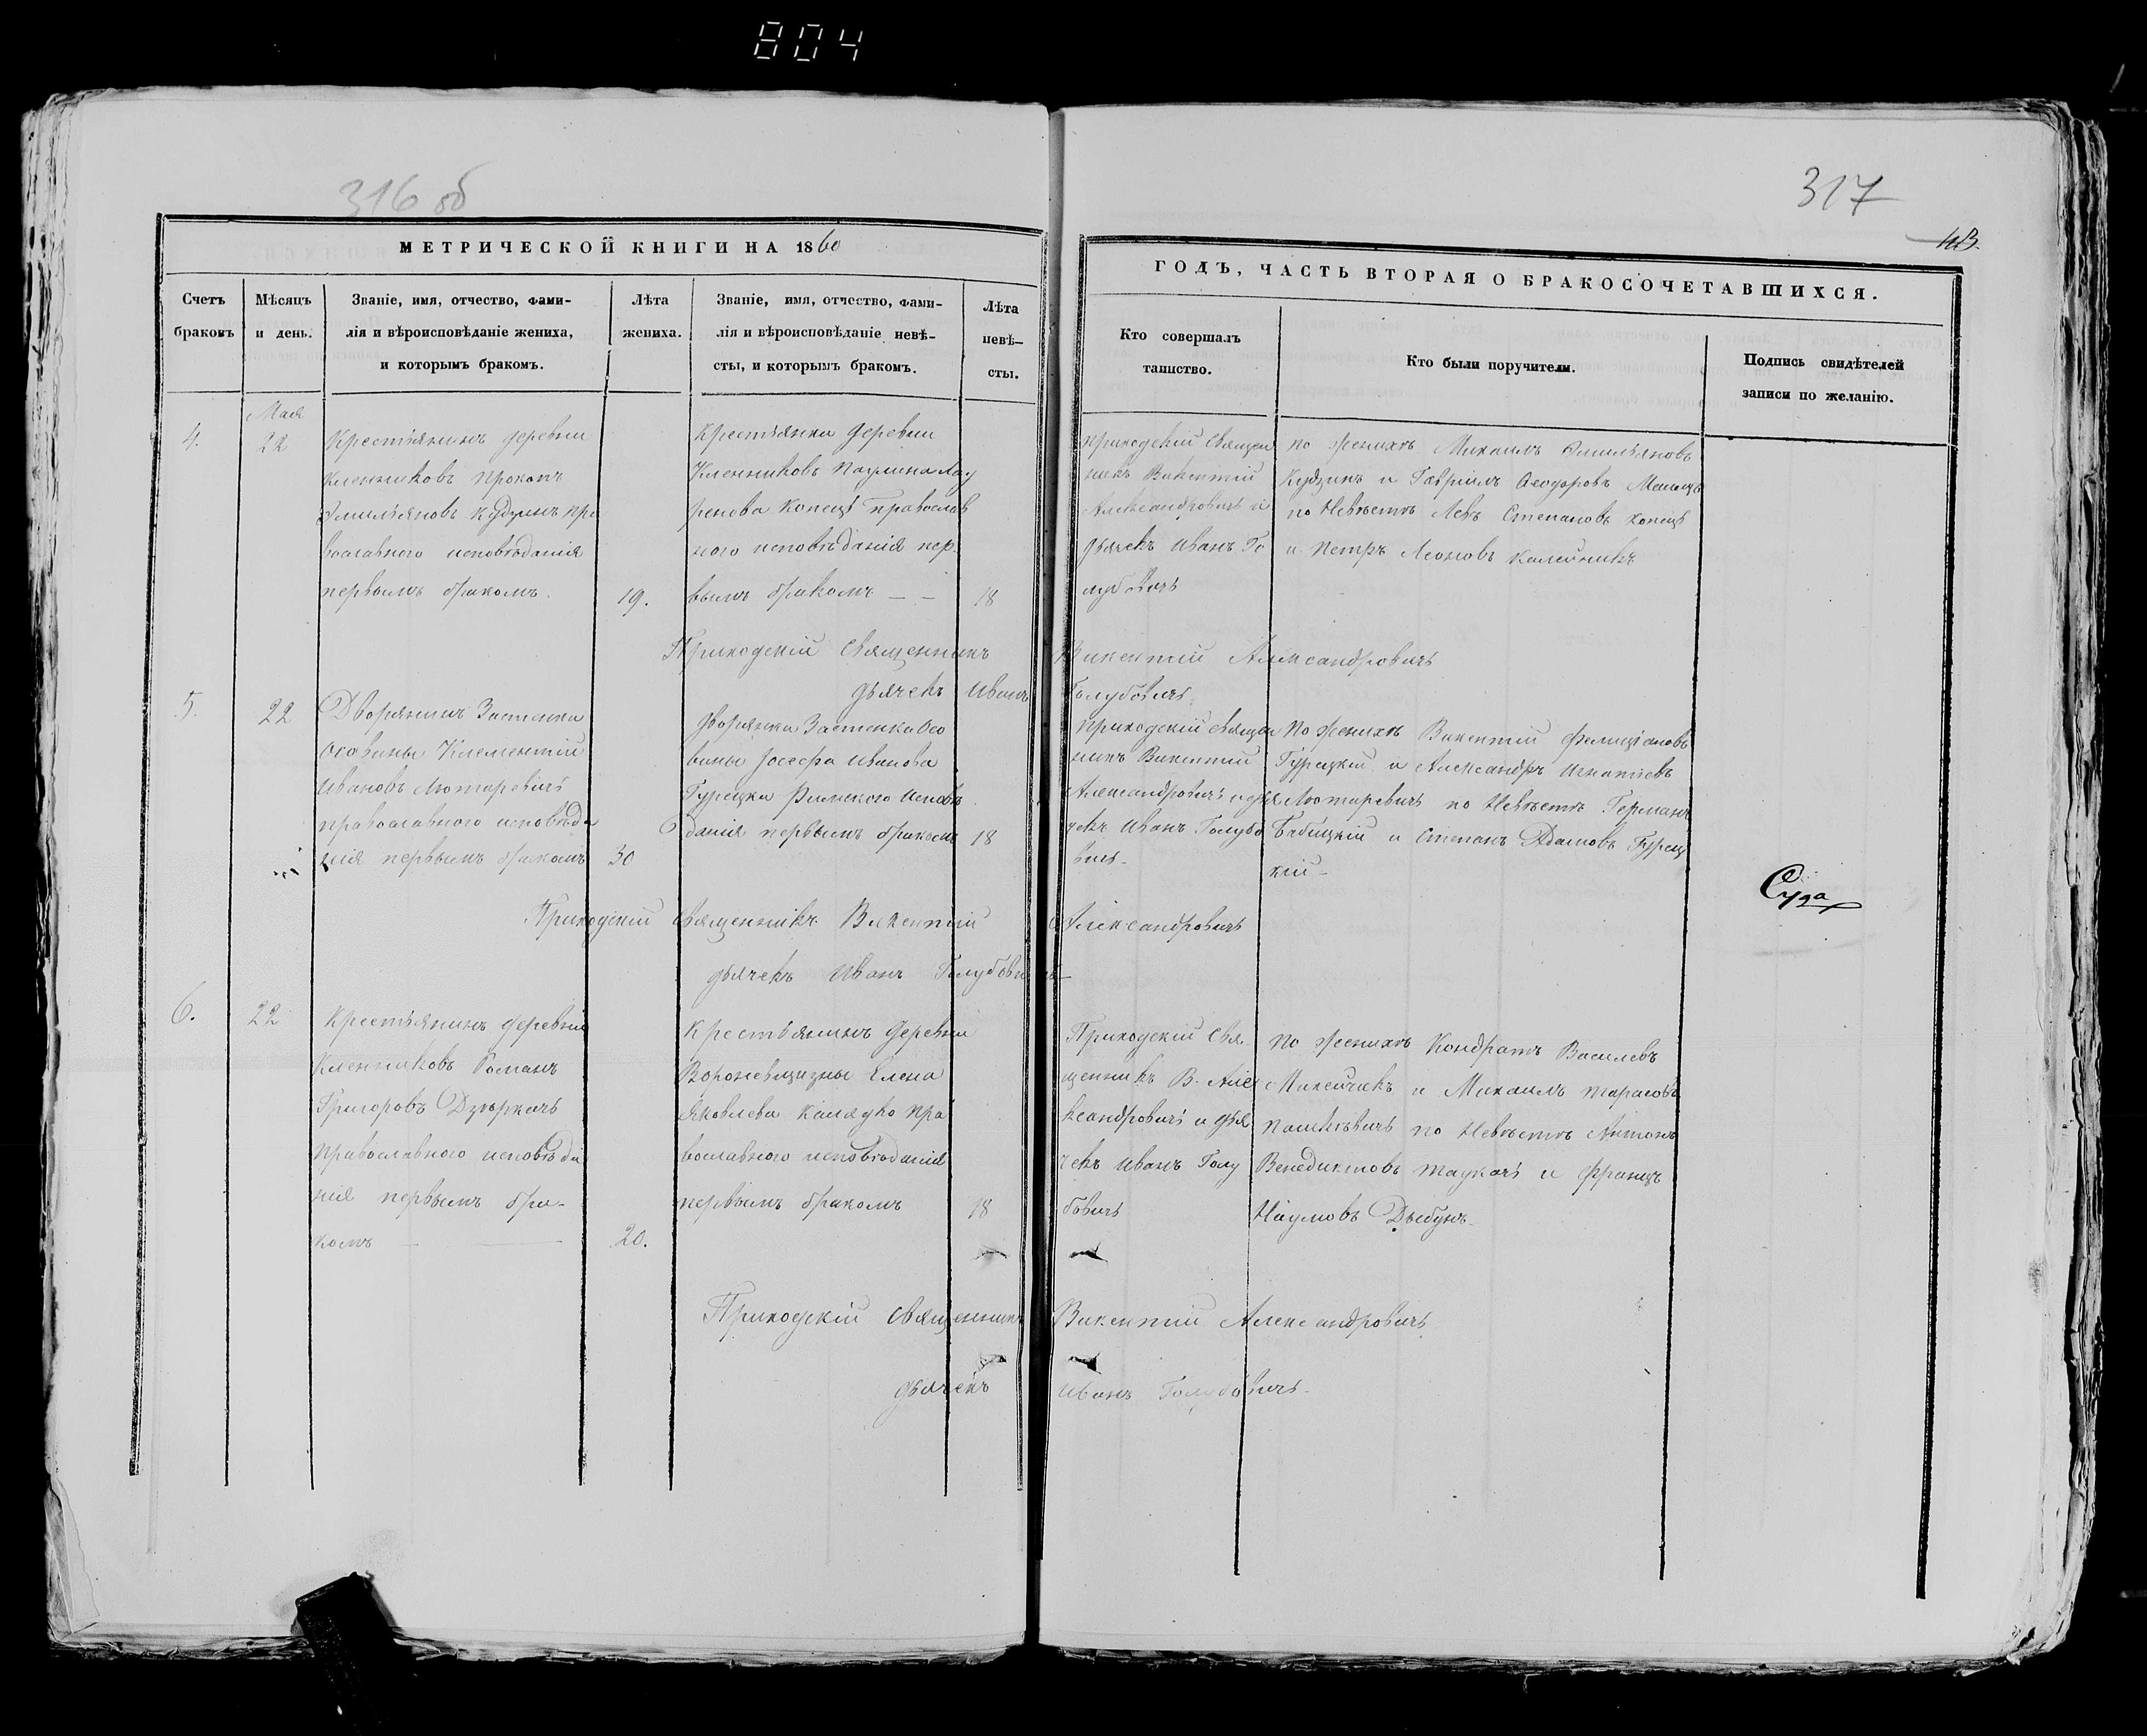 804
316 об
317
МЕТРИЧЕСКОЙ КНИГИ НА 1860
ГОДЪ, ЧАСТЬ ВТОРАЯ О БРАКОСОЧЕТАВШИХСЯ.
Счетъ
браковъ
Мѣсяцъ
и день.
Званіе, имя, отчество, фами-
лія и вѣроисповѣданіе жениха,
и которымъ бракомъ.
Лѣта
жениха.
Званіе, имя, отчество, фами-
лія и вѣроисповѣданіе невѣ-
сты, и которымъ бракомъ.
Лѣта
невѣ-
сты.
Кто совершалъ
таинство.
Кто были поручители.
Подпись свидѣтелей
записи по желанію.
4.
Мая
22
Крестьянинъ деревни
Кленниковъ Прокопъ
Эмильяновъ Кудзинъ пра
вославного исповѣданія
первымъ бракомъ.
19.
Крестьянка деревни
Кленниковъ Паулина Лау
ренова Копецъ православ
ного исповѣданія пер
вымъ бракомъ — —
18
приходскій священ
никъ Викентій
Александровичъ и
дьячекъ Иванъ Го
лубовичъ
по женихѣ Михаилъ Эмильяновъ
Кудзинъ и Гавріилъ Феодоровъ
по Невѣстѣ Левъ Степановъ Копецъ
и Петръ Леоновъ
Приходскій Священникъ Викентій Александровичъ
дьячекъ Иванъ Голубовичъ
5.
22
Дворянинъ Застенка
Осовины Клементій
Ивановъ Лютаревичъ
православного исповѣда
нія первымъ бракомъ
30
дворянка Застенка Осо
вины Іосефа Иванова
Турецка Римского Исповѣ
данія первымъ бракомъ
18
Приходскій священ
никъ Викентій
Александровичъ и дья
чекъ Иванъ Голубо
вичъ-
По женихѣ Викентій Фелиціановъ
Турецкій и Александръ Игнатіевъ
Лютаревичъ по Невѣстѣ Германъ
Бабицкій и Степанъ Адамовъ Турец
кій-
Суда
Приходскій священникъ Викентій Александровичъ
дьячекъ Иванъ Голубовичъ-
6.
22
Крестьянинъ деревни
Кленниковъ Романъ
Григоровъ Дзѣркачъ
православного исповѣда
нія первымъ бра-
комъ — —
20.
Крестьянинъ деревни
Вороневщизны Елена
Яковлева Калядко пра
вославного исповѣданія
первымъ бракомъ
18
Приходскій Свя
щенникъ В. Але
ксандровичъ и дья
чекъ Иванъ Голу
бовичъ
по женихѣ Кондратъ Василевъ
Микейчикъ и Михаилъ Тарасовъ
Пашкѣвичъ по Невѣстѣ Антонъ
Венедиктовъ Таукачъ и Францъ
Наумовъ Дыбунъ-
Приходскій Священникъ Викентій Александровичъ
дьячекъ Иванъ Голубовичъ-